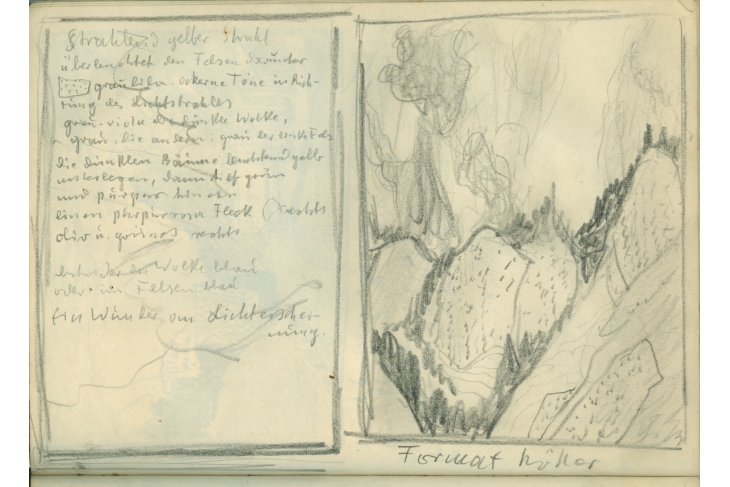 Strahlend gelber Strahl
überleuchtet den Felsen darunter
graulila. ockerne Töne in Rich-
tung des Lichtstrahles
grau-viole die dunkle Wolke,
grau die andern, grau der erste Fels
die dunklen Bäume leuchtend gelb
unterlegen, dann tief grün
und purpur hinein
einen purpurrosa Fleck rechts
div. u. grünes rechts
entweder der Wolke blau
oder im Felsen blau
Ein Wunder an Lichterschei-
nung.
Format höher